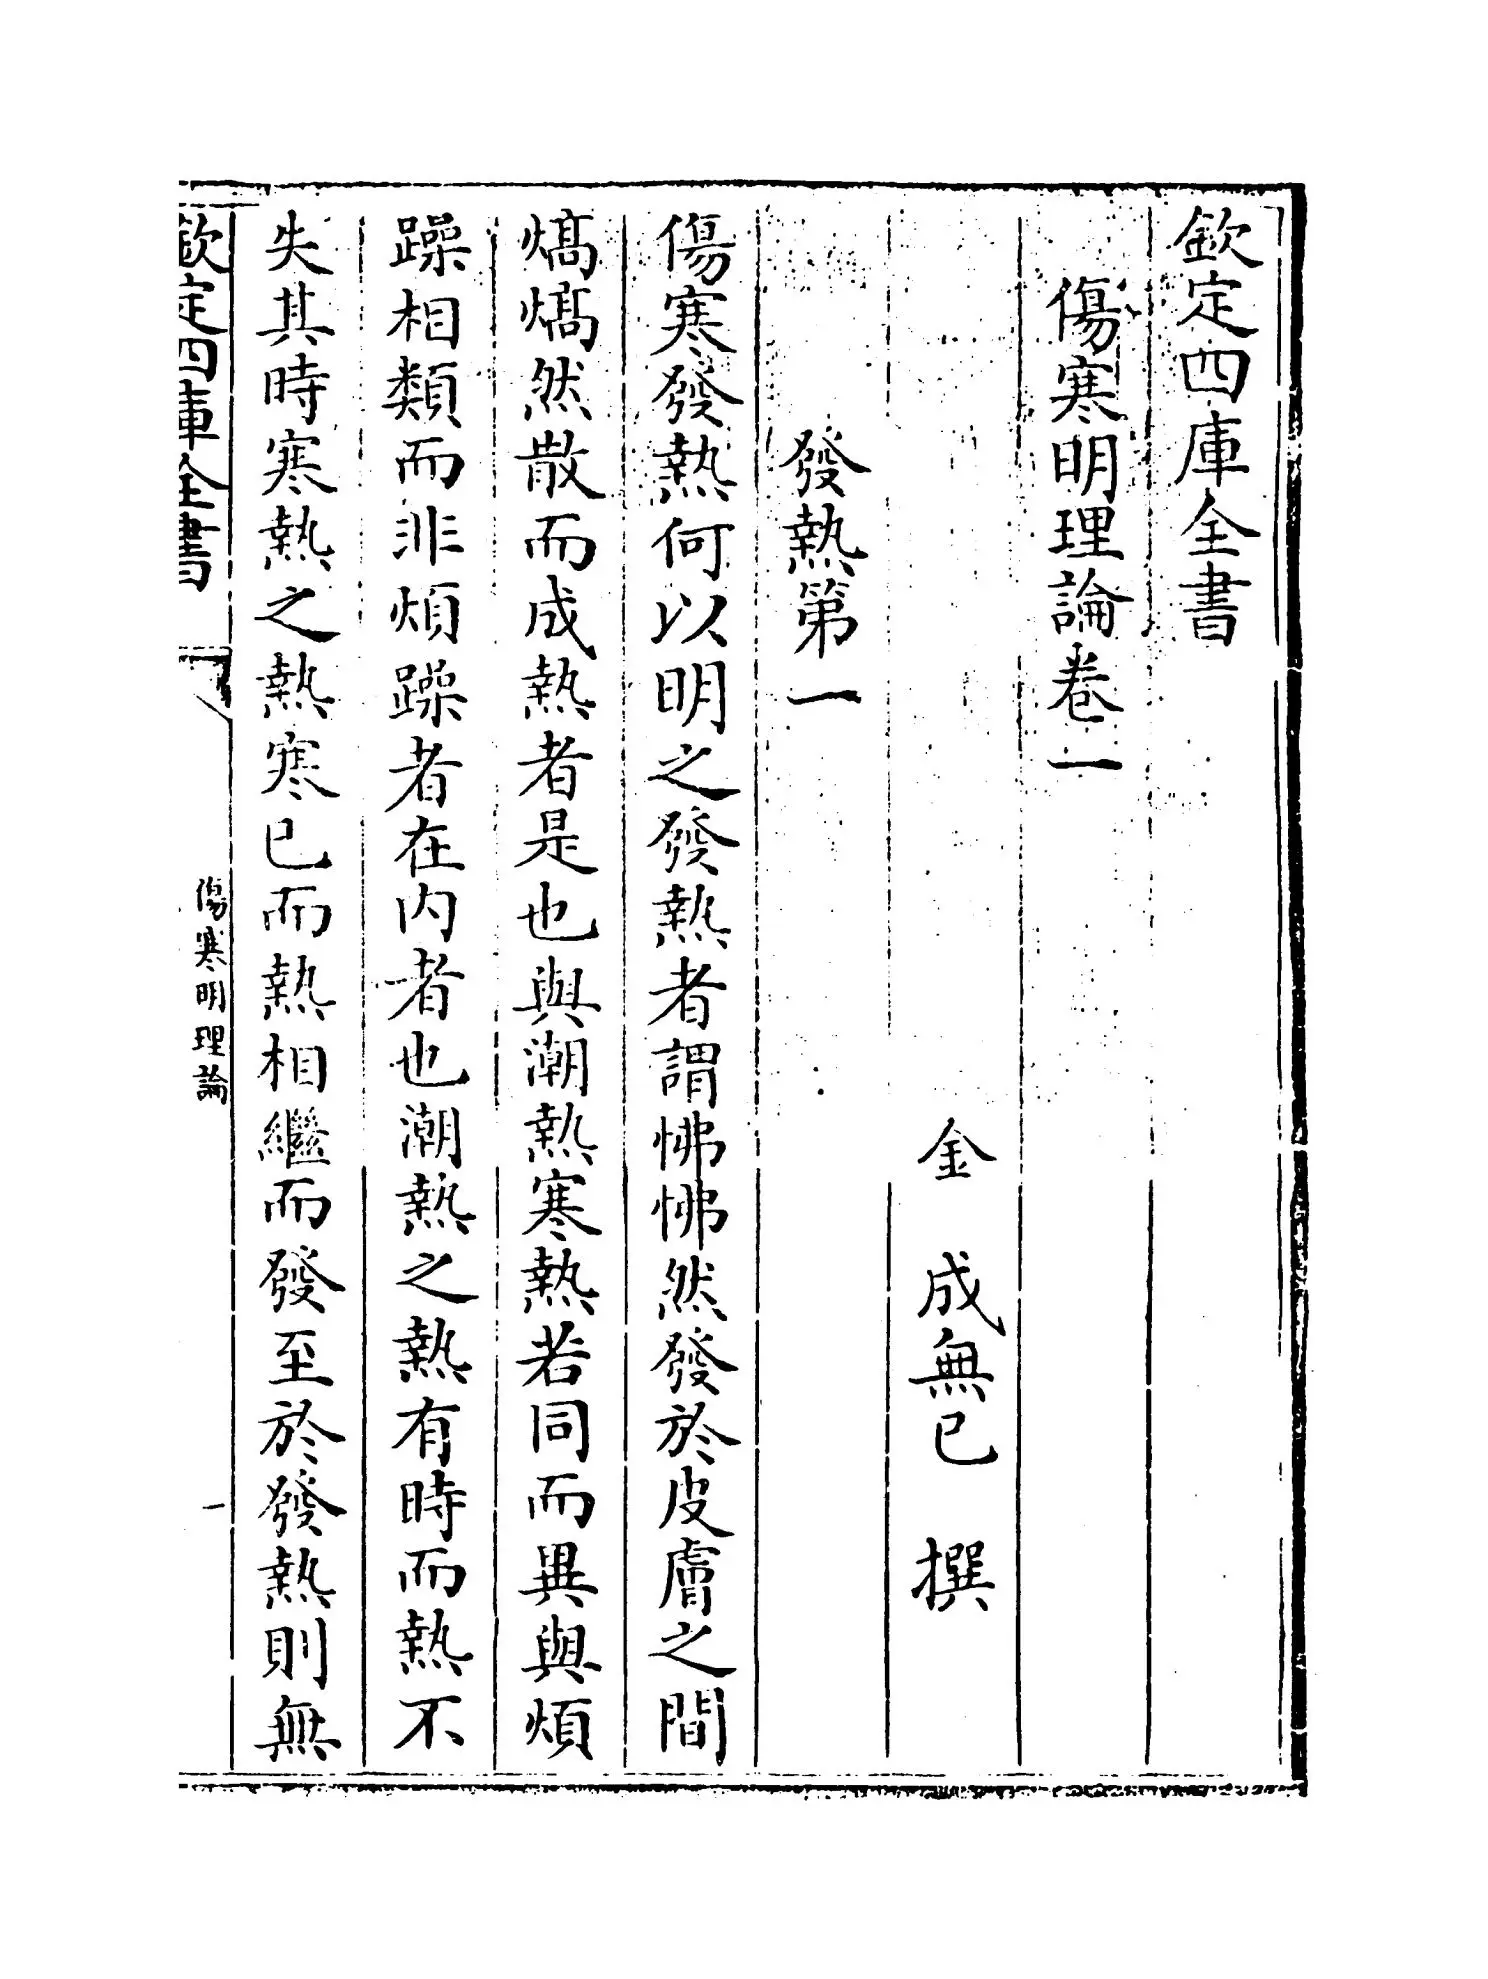 欽定四庫全書
傷寒明理論卷一
金 成無已 撰
發熱第一
傷寒發熱何以明之發熱者謂怫怫然發於皮膚之間
熇熇然散而成熱者是也與潮熱寒熱若同而異與煩
躁相類而非煩躁者在内者也潮熱之熱有時而熱不
失其時寒熱之熱寒已而熱相繼而發至於發熱則無
欽定四庫全書
傷寒明理論
一